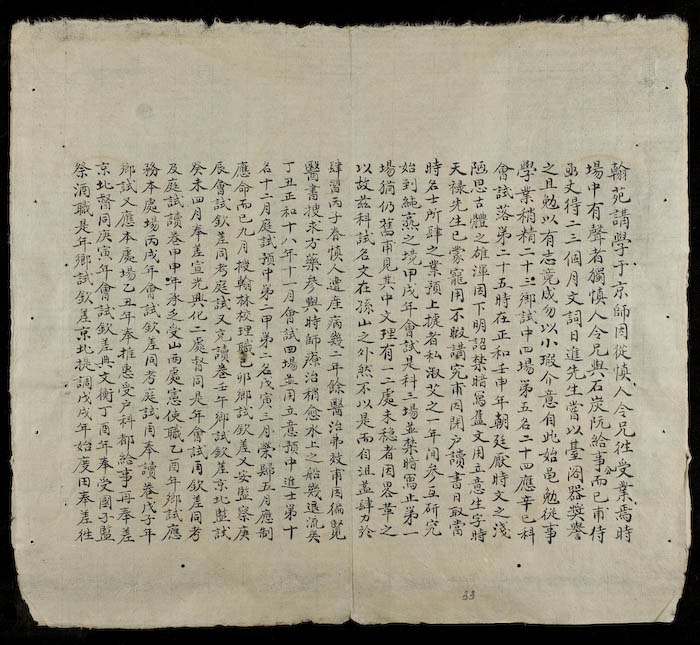 翰苑講學于京師因從慎人令兄徃受業焉時
場中有聲者獨慎人令兄與石炭阮給事公而已甫侍
函丈得二三個月文詞日進先生嘗以臺閣器獎譽
之且勉以有志竟成勿以小瑕介意自此始黽勉從事
學業稍精二十三鄉試中四場第五名二十四應辛巳科
會試落第二十五時在正和壬申年朝廷厭時文之淺
陋思古體之雄渾因下明詔禁暗寫舊文用立意生字時
天祿先生已蒙寵用不暇講究甫因閉户讀書日取當
時名士所肆之業預上援者私淑艾之一年間參互研究
始到純熟之境甲戌年會試是科三場並禁暗寫止第一
場猶仍舊甫見其中文理有一二處未穩者因畧筆之
以故茲科試名文在孫山之外然不以是而自沮益肆力於
肆習丙子春慎人遭產病幾二年餘醫治弗效甫因徧覽
醫書搜求方藥參與時師療治稍愈水上之船幾逐流矣
丁丑正和十八年十一月會試四場並用立意預中進士第十
名十二月庭試預中第二甲第二名戊寅三月榮歸五月應制
應命而巳九月授翰林校理職己卯鄉試欽差又安監察庚
辰會試欽差同考庭試又充讀卷壬午鄉試欽差京北監試
癸未四月奉差宣光興化二處督同是年會試甫欽差同考
及庭試讀卷甲申年承乏受山西處憲使職乙酉年鄉試應
務本處場丙戌年會試欽差同考庭試甫奉讀卷戊子年
鄉試又應本處場乙丑年奉推惠受户科都給事再奉差
京北督同庚寅年會試欽差典文衡丁酉年奉受國子監
祭酒職是年鄉試欽差京北提調戊戌年始度因奉差徃
33